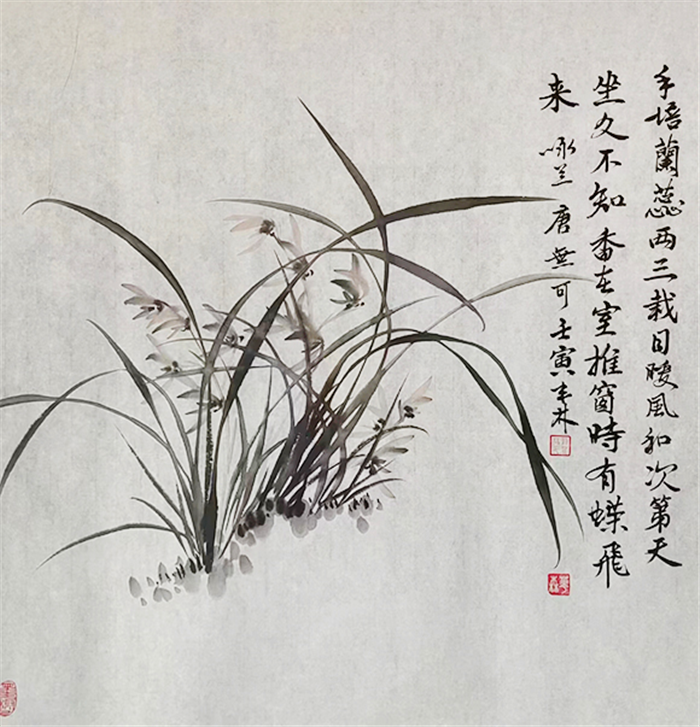 手培蘭蕊兩三栽日暖風和次第天
坐久不知香在室推窗時有蝶飛
来 咏兰 唐無可 壬寅 丰林